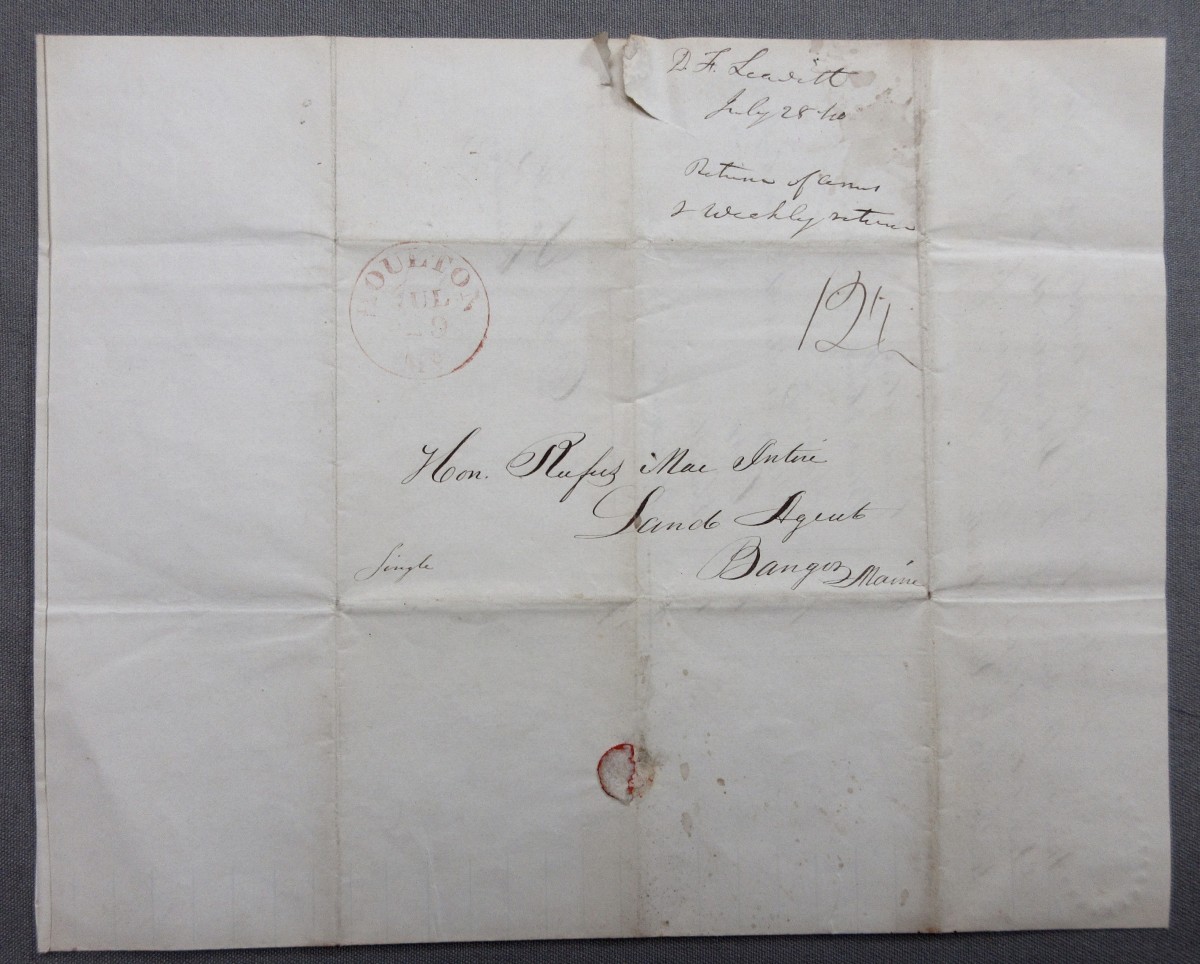 D. F. Leavitt
July 28 40
Return of arms
& Weekly return
HOULTON
JUL
29
Me
12½
Hon. Rufus Mac Intire
Land Agent
Single
Bangor Maine